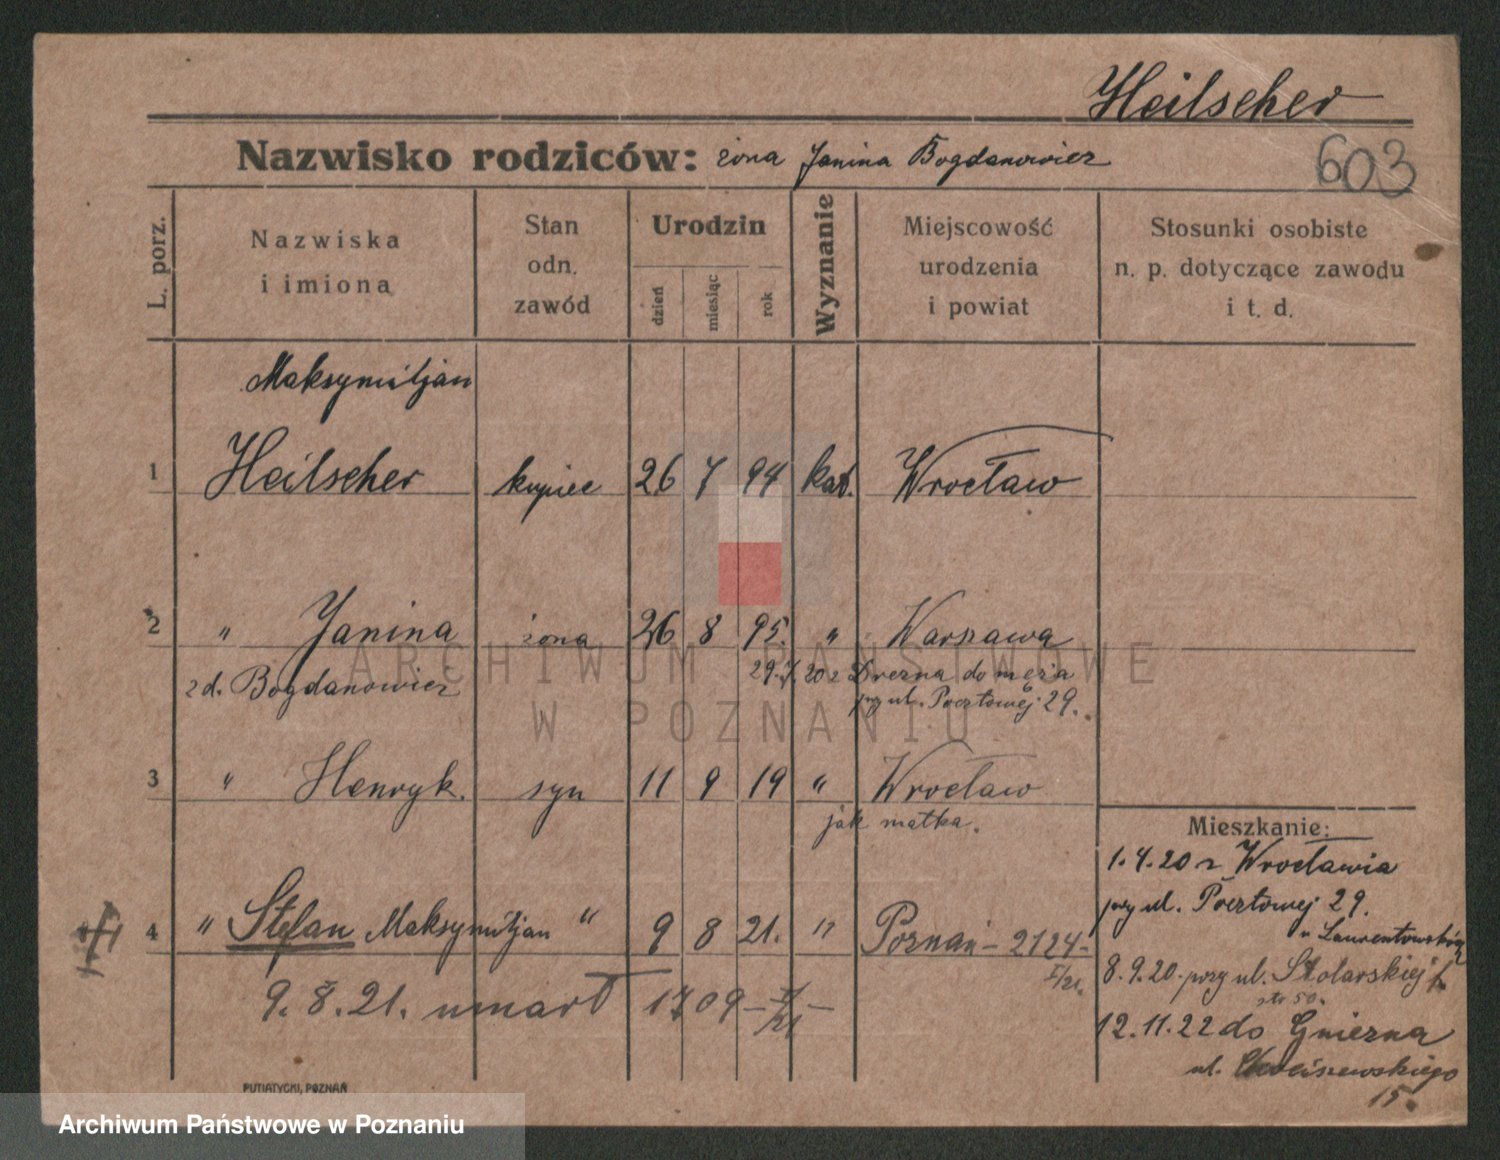 Heilscher
Nazwisko rodziców: żona Janina Bogdanowicz
603
L. porz.
Nazwiska
i imiona
Stan
odn.
zawód
Urodzin
dzień
miesiąc
rok
Wyznanie
Miejscowość
urodzenia
i powiat
Stosunki osobiste
n. p. dotyczące zawodu
i t. d.
Maksymiljan
1 Heilscher kupiec 26 7 94 kat. Wrocław
2 " Janina żona 26 8 95. " Warszawa
z d. Bogdanowicz 29.7.20 z Drezna do męża
przy ul. Pocztowej 29.
3 " Henryk. syn 11 9 19 " Wrocław
jak matka.
Mieszkanie:
1.4.20 z Wrocławia
przy ul. Pocztowej 29.
u Laurentowskiej
4 " Stefan Maksymiljan " 9 8 21. " Poznań - 2124-
I/21.
8.9.20. przy ul. Stolarskiej
9.8.21. umarł 1709 - I/21 -
12.11.22 do Gniezna
ul.
15.
PUTIATYCKI, POZNAŃ
ARCHIWUM PAŃSTWOWE
W POZNANIU
Archiwum Państwowe w Poznaniu